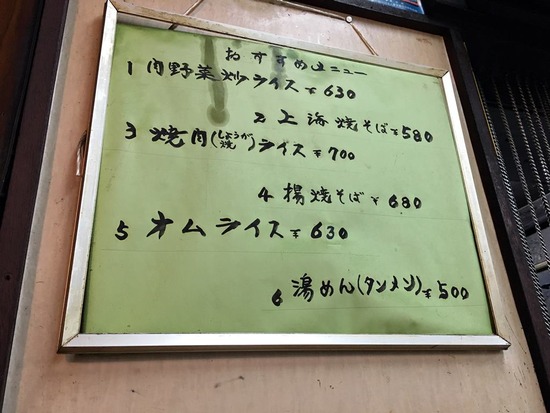 おすすめメニュー
1 肉野菜炒ライス¥630
2 上海焼そば¥580
3 焼肉(しょうが焼)ライス¥700
4 揚焼そば¥680
5 オムライス¥630
6 湯めん(タンメン)¥500